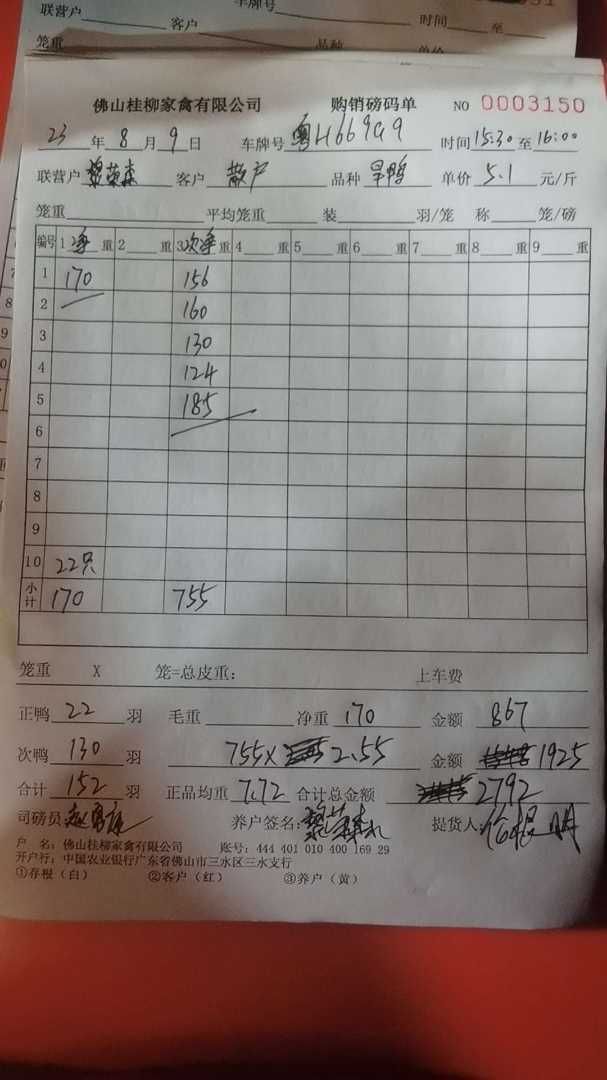 联营户 客户 车牌号 时间 至
笼重 品种 单价
佛山桂柳家禽有限公司 购销磅码单 NO 0003150
23 年 8 月 9 日 车牌号 粤H669G9 时间 15:30 至 16:00
联营户 客户 散户 品种 旱鸭 单价 5.1 元/斤
笼重 平均笼重 装 羽/笼 称 笼/磅
编号 1 净 重 2 重 3 次净 重 4 重 5 重 6 重 7 重 8 重 9 重
1 170 156
2 160
3 130
4 124
5 185
6
7
8
9
10 22只
小计 170 755
笼重 X 笼=总皮重: 上车费
正鸭 22 羽 毛重 净重 170 金额 867
次鸭 130 羽 755X 2.55 金额 1925
合计 152 羽 正品均重 7.72 合计总金额 2792
司磅员 养户签名: 提货人:
户 名: 佛山桂柳家禽有限公司 账号: 444 401 010 400 169 29
开户行: 中国农业银行广东省佛山市三水区三水支行
①存根(白) ②客户(红) ③养户(黄)